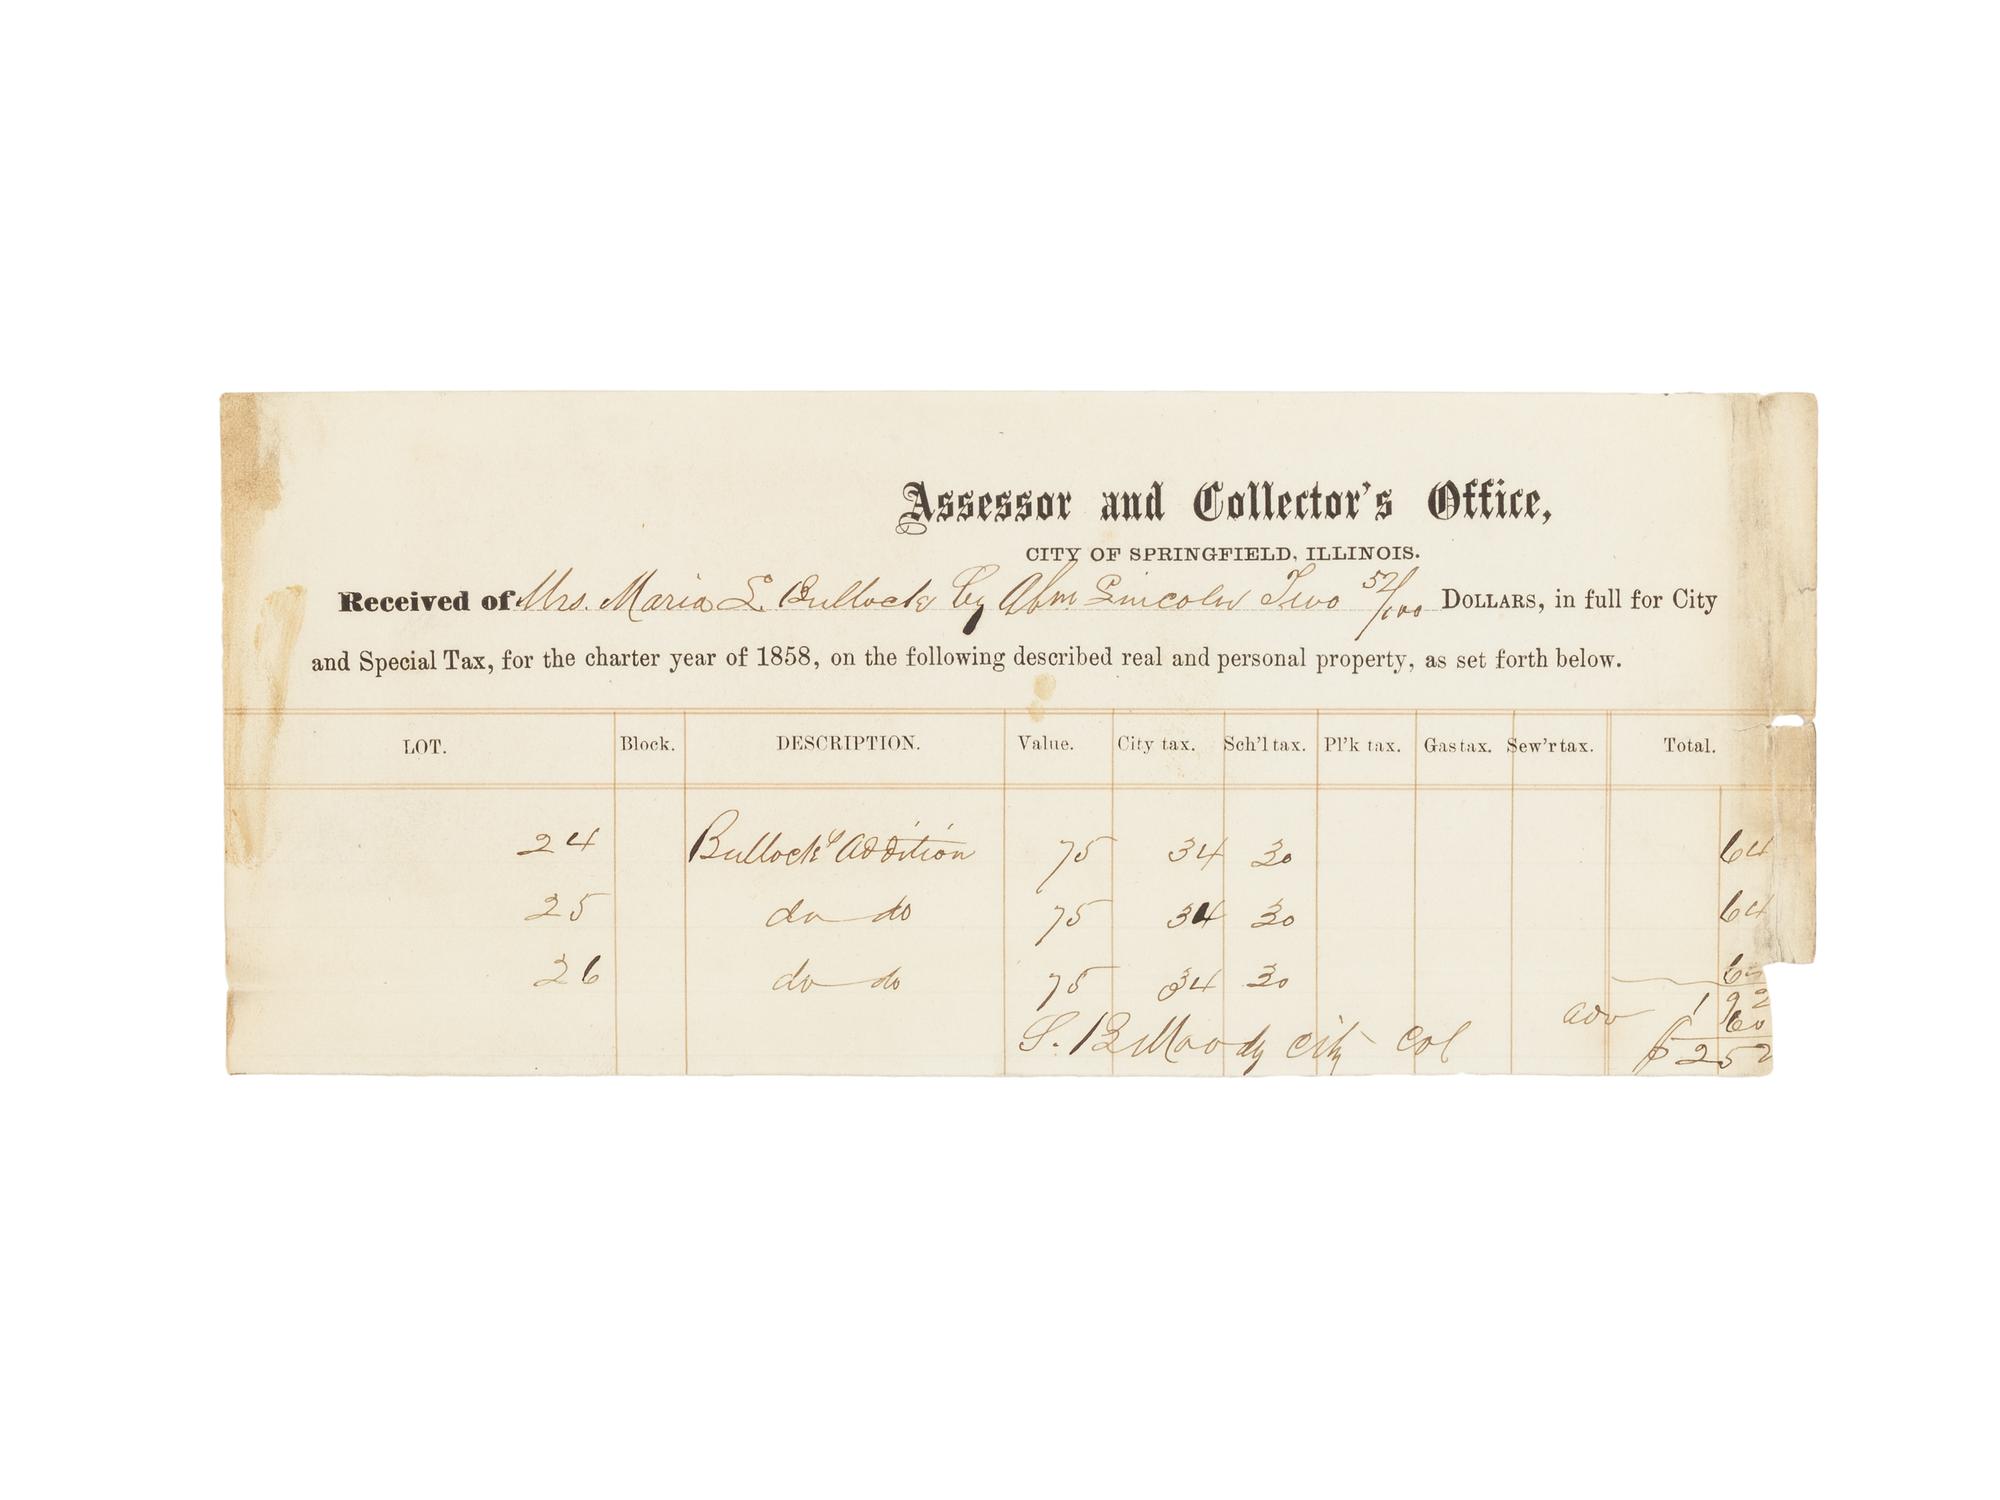 Assessor and Collector's Office,
CITY OF SPRINGFIELD, ILLINOIS.
Received of Mrs. Maria L. Bullock by Abm Lincoln Two 52/100 DOLLARS, in full for City
and Special Tax, for the charter year of 1858, on the following described real and personal property, as set forth below.
LOT. Block. DESCRIPTION. Value. City tax. Sch'l tax. Pl'k tax. Gas tax. Sew'r tax. Total.
24 Bullock's Addition 75 34 30 64
25 do do 75 34 30 64
26 do do 75 34 30 6
1 92
adv 60
S. B Moody city col $2 52